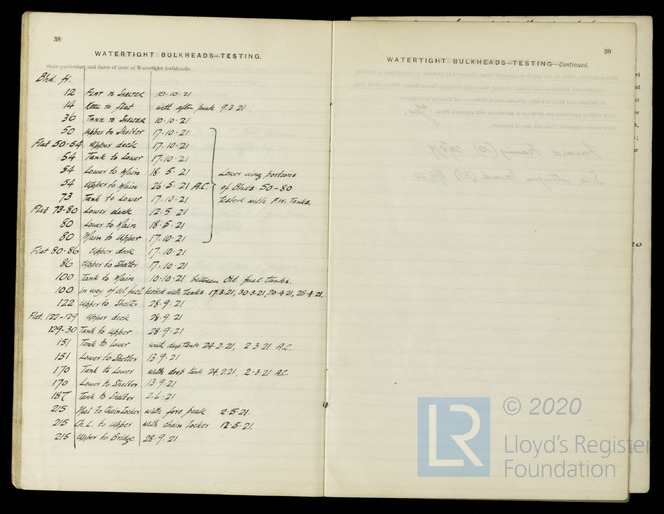 38
WATERTIGHT BULKHEADS—TESTING.
State particulars and dates of tests of Watertight Bulkheads.
Bhd. H.
12 Flat to Shelter 10-10-21
14 Keel to Flat with after peak 9.3.21
36 Tank to Shelter 10-10-21
50 Upper to Shelter 17.10.21
Flat 50-54 Upper deck 17.10.21
54 Tank to Lower 17.10.21
54 Lower to Main 18.5.21
54 Upper to Main 26.5.21 A.C.
73 Tank to Lower 17.10.21
Flat 73-80 Lower deck 12.5.21
80 Lower to Main 18.5.21
80 Main to Upper 17.10.21
Lower wing portions
of Bhds 50-80
tested with F.W. Tanks.
Flat 80-86 Upper deck 17.10.21
86 Upper to Shelter 17.10.21
100 Tank to Main 10.10.21 between Oil fuel tanks.
100 in way of oil fuel tested with tanks 17.3.21, 30.3.21, 20.4.21, 25.4.21.
122 Upper to Shelter 28.9.21
Flat. 122-129 Upper deck 28.9.21
129-30 Tank to Upper 28.9.21
151 Tank to Lower with deep tank 24.2.21, 2.3.21. A.C.
151 Lower to Shelter 13.9.21
170 Tank to Lower with deep tank 24.2.21, 2-3-21 A.C.
170 Lower to Shelter 13.9.21
187 Tank to Shelter 2.6.21
215 Keel to Chain Locker with fore peak 2.5.21.
215 Ch. L. to Upper with chain locker 12.5.21.
215 Upper to Bridge 28.9.21
39
WATERTIGHT BULKHEADS—TESTING—Continued.
LR
© 2020
Lloyd's Register
Foundation